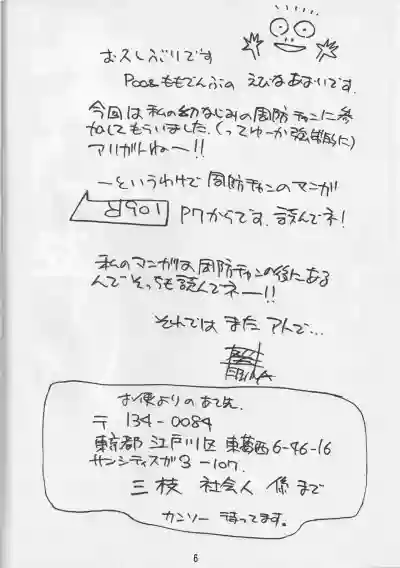 おひさしぶりです
Poo&ももでんぶの えびなあおいです。
今回は私の幼なじみの周防チャンに参
加してもらいました。(ってゆーか強制的に)
アリガトねー!!
ーというわけで周防チャンのマンガ
P7からです。読んでネ!
私のマンガは周防チャンの後にある
んでそっちも読んでネー!!
それでは また アトで…
EBINA
お便りのあて先
〒134-0084
東京都 江戸川区 東葛西6-46-16
サンシティスガ3-107
三枝 社会人 係まで
カンソー 待ってます。
6